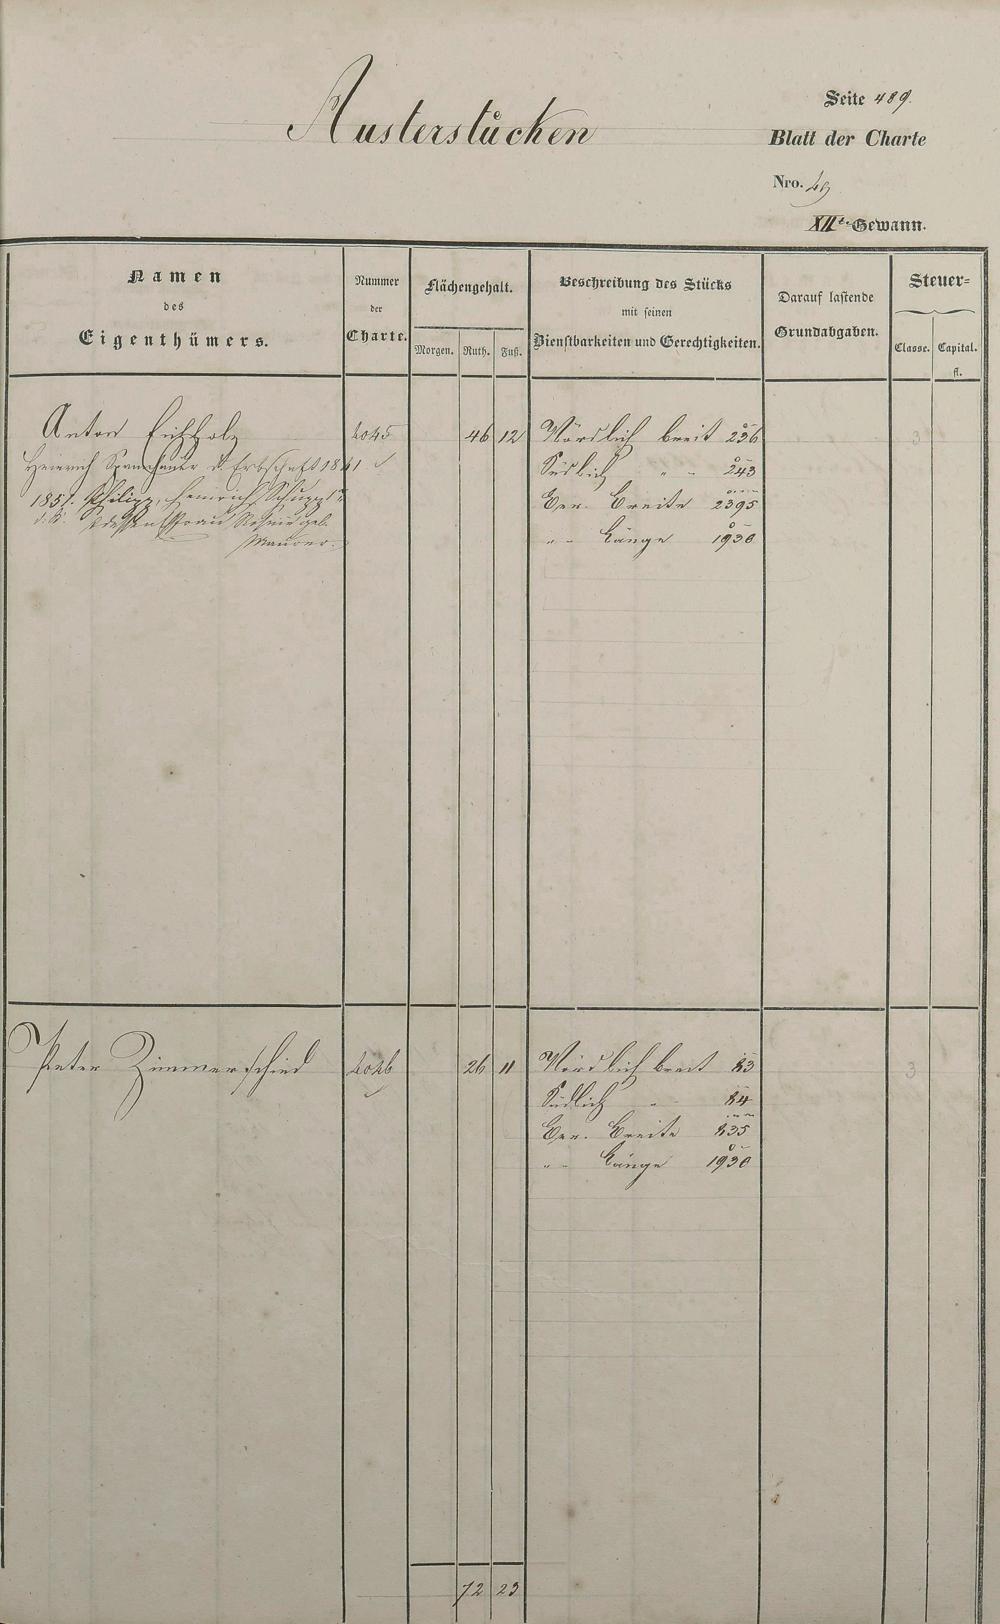 Austerstücken
Seite 489.
Blatt der Charte
Nro. 49
XIIt. Gewann.
Namen
des
Eigenthümers.
Nummer
der
Charte.
Flächengehalt.
Morgen. Ruth. Fuß.
Beschreibung des Stücks
mit seinen
Dienstbarkeiten und Gerechtigkeiten.
Darauf lastende
Grundabgaben.
Steuer=
Classe. Capital.
fl.
Anton Eichholz 4045 46 12 Nördlich breit 236 3
Heinrich d. Erbschaft 1841 Südlich " - 243
1857. Philipp, Heinrich Ger. Breite 2395
d. K. dessen Frau geb. " - Länge 1930
Maurer.
Peter Zimmerschied 4046 26 11 Nördlich breit 83 3
Südlich " 84
Ger. Breite 835
" - Länge 1930
72 23